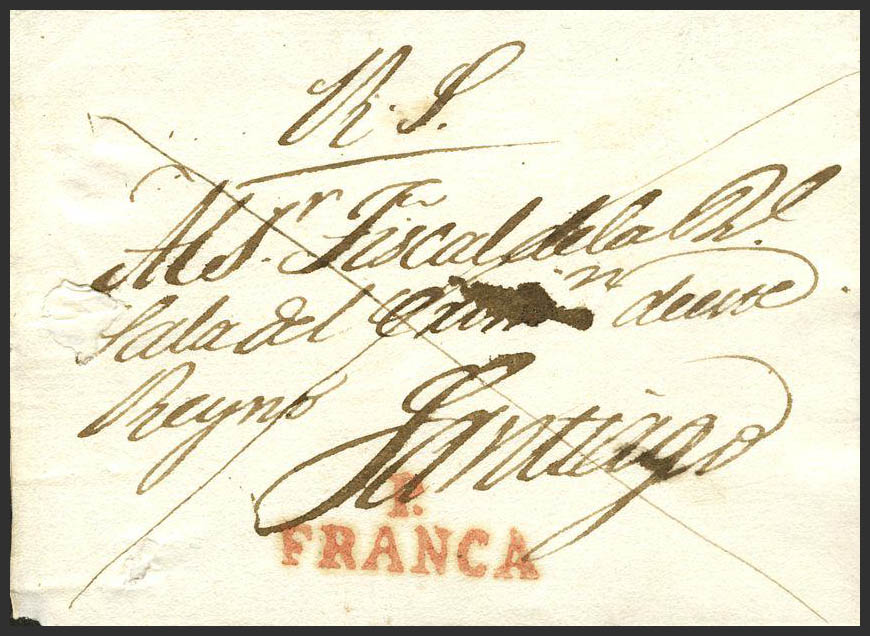 R. S.
Al Sr. Fiscal de la Rl.
Sala del Crimen de ese
Reyno
Santiago
P.
FRANCA